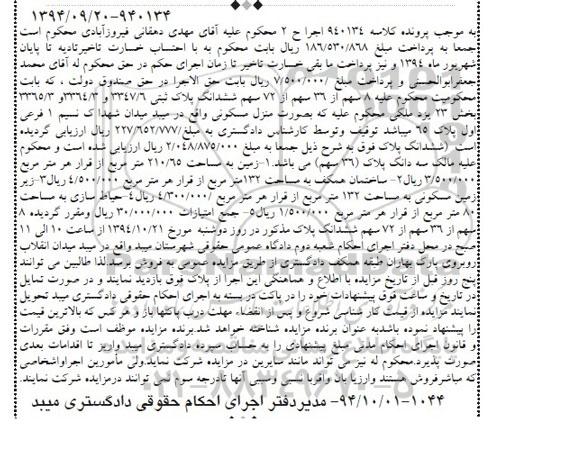 ۱۳۹۴/۰۹/۲۰-۹۴۰۱۳۴
به موجب پرونده کلاسه ۹۴۰۱۳۴ اجرا ح ۲ محکوم علیه آقای مهدی دهقانی فیروزآبادی محکوم است
جمعا به پرداخت مبلغ ۱۸۶/۵۳۰/۸۶۸ ریال بابت محکوم به با احتساب خسارت تاخیرتادیه تا پایان
شهریور ماه ۱۳۹۴ و نیز پرداخت ما بقی خسارت تاخیر تا زمان اجرای حکم در حق محکوم له آقای محمد
جعفرابوالحسنی و پرداخت مبلغ /۷/۵۰۰/۰۰۰ ریال بابت حق الاجرا در حق صندوق دولت ، که بابت
محکومیت محکوم علیه ۸ سهم از ۳۶ سهم از ۷۲ سهم ششدانگ پلاک ثبتی ۳۳۴۷/۶ و ۳۳۶۴/۳و ۳۳۶۵/۳
بخش ۲۳ یزد ملکی محکوم علیه که بصورت منزل مسکونی واقع در میبد میدان شهدا ک نسیم ۱ فرعی
اول پلاک ۶۵ میباشد توقیف وتوسط کارشناس دادگستری به مبلغ/۲۲۷/۶۵۲/۷۷۷ ریال ارزیابی گردیده
است (ششدانگ پلاک فوق به شرح ذیل جمعا به مبلغ ۲/۰۴۸/۸۵۰/۰۰۰ ریال ارزیابی شده است و محکوم
علیه مالک سه دانگ پلاک (۳۶ سهم) می باشد.۱-زمین به مساحت ۲۱۰/۶۵ متر مربع از قرار هر متر مربع
۳/۵۰۰/۰۰۰ ریال۲- ساختمان همکف به مساحت ۱۳۲متر مربع از قرار هر متر مربع ۴/۵۰۰/۰۰۰ ریال۳-زیر
زمین مسکونی به مساحت ۱۳۲ متر مربع از قرار هر متر مربع /۴/۳۰۰/۰۰۰ ریال۴-حیاط سازی به مساحت
۸۰ متر مربع از قرار هر متر مربع ۱/۵۰۰/۰۰۰ ریال۵- جمع امتیازات ۳۰/۰۰۰/۰۰۰ ریال ومقرر گردیده ۸
سهم از ۳۶ سهم از ۷۲ سهم ششدانگ پلاک مذکور در روز دوشنبه مورخ ۱۳۹۴/۱۰/۲۱ از ساعت ۱۰ الی ۱۱
صبح در محل دفتر اجرای احکام شعبه دوم دادگاه عمومی حقوقی شهرستان میبد واقع در میبد میدان انقلاب
روبروی پارک بهاران طبقه همکف دادگستری از طریق مزایده عمومی به فروش برسد.لذا طالبین می توانند
پنج روز قبل از تاریخ مزایده با اطلاع و هماهنگی این اجرا از پلاک فوق بازدید نمایند و در صورت تمایل
در تاریخ و ساعت فوق پیشنهادات خود را در پاکت در بسته به اجرای احکام حقوقی دادگستری میبد تحویل
نمایند.مزایده از قیمت کار شناسی شروع و پس از انقضاء مهلت درب پاکتها باز و هر کس که بالاترین قیمت
را پیشنهاد نموده باشدبه عنوان برنده مزایده شناخته خواهد شد.برنده مزایده موظف است وفق مقررات
و قانون اجرای احکام مدنی مبلغ پیشنهادی را به حساب سپرده دادگستری میبد واریز تا اقدامات بعدی
صورت پذیرد.محکوم له نیز می تواند مانند سایرین در مزایده شرکت نماید.ولی مامورین اجراواشخاصی
که مباشرفروش هستند وارزیا بان واقرباسببی ونسبی آنها تادرجه سوم نمی توانند درمزایده شرکت نمایند.
۹۴/۱۰/۰۱-۱۰۴۴- مدیردفتر اجرای احکام حقوقی دادگستری میبد